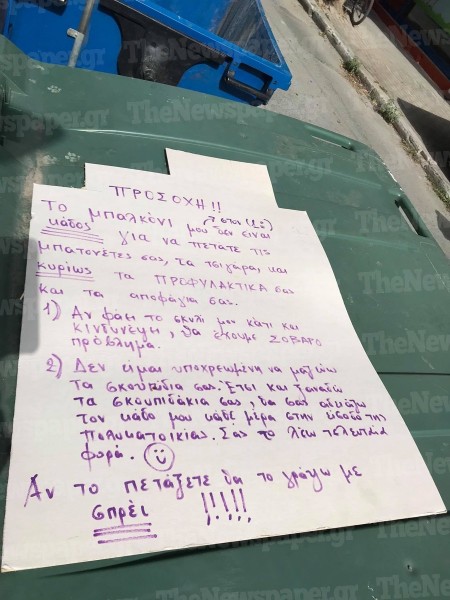 ΠΡΟΣΟΧΗ!!
ΤΟ μπαλκόνι μου (στον 1ο) δεν είναι
κάδος για να πετάτε τις
μπατονέτες σας, τα τσιγάρα, και
κυρίως τα ΠΡΟΦΥΛΑΚΤΙΚΑ σας
και τα αποφάγια σας.
1) Αν φάει το σκυλί μου κάτι και
κινδυνέψη, θα έχουμε ΣΟΒΑΡΟ
πρόβλημα.
2) Δεν είμαι υποχρεωμένη να μαζεύω
τα σκουπίδια σας. Έτσι και ξαναδώ
τα σκουπιδάκια σας, θα σας αδειάζω
τον κάδο μου κάθε μέρα στην είσοδο της
πολυκατοικίας. Σας το λέω τελευταία
φορά.
Αν το πετάξετε θα το γράψω με
σπρέι !!!!!
TheNewspaper.gr